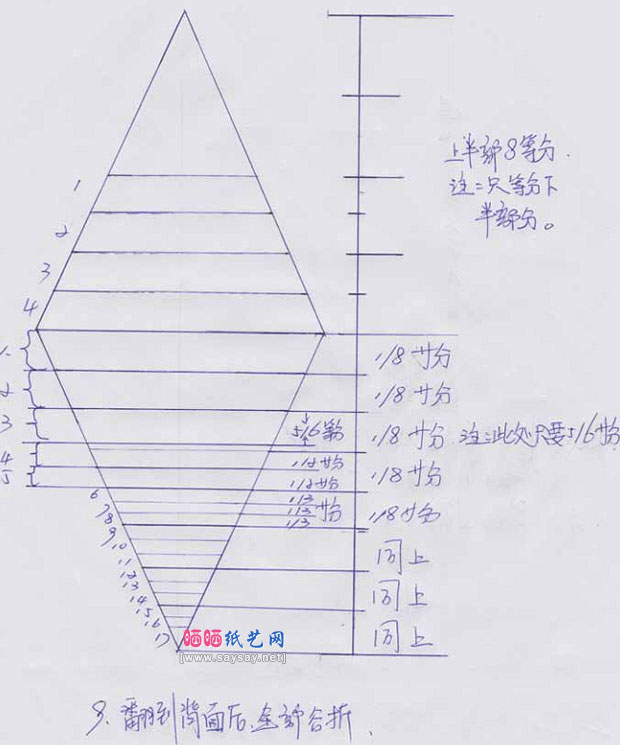 上半部8等分.
注:只等分下
半部分。
1
2
3
4
1
2
3
4
5
6
7
8
9
10
11
12
13
14
15
16
17
1/8 廿分
1/8 廿分
5/6 等分
1/8 廿分 注:此处只要5/6廿分
1/2 廿分
1/8 廿分
1/2 廿分
1/3
1/3 廿分
1/3
1/8 廿分
同上
同上
同上
晒晒纸艺网
[www.saysay.net]
9. 翻到背面后,全部合折.